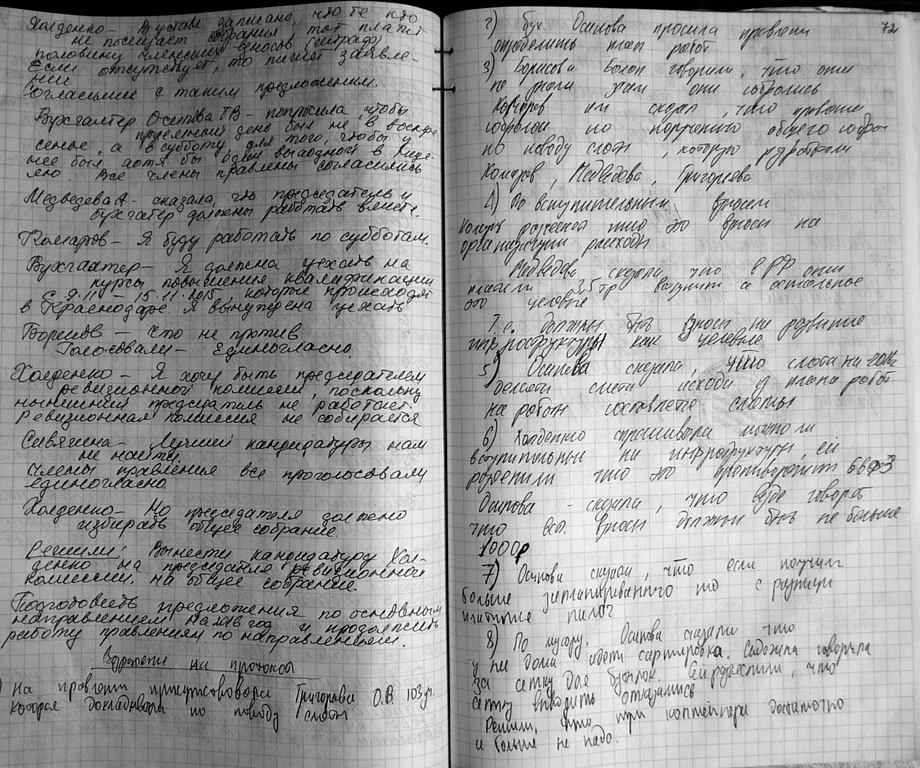 Холденко – В уставе записано, что те кто
не посещает собрания тот платит
половину членских взносов (штраф)
Если отсутствует, то пишет заявле-
ние.
Согласились с таким предложением.
Бухгалтер Осипова ТВ – попросила, чтобы
приемный день был не в воскре-
сенье, а в субботу, для того, чтобы у
нее был хотя бы один выходной в неде-
лю. Все члены правления согласились
Медведева А – сказала, что председатель и
бухгатер должны работать вместе.
Комаров – Я буду работать по субботам.
Бухгалтер – Я должна уехать на
курсы повышения квалификации
с 9.11 – 15.11.2015 которые происходят
в Краснодаре. Я вынуждена уехать
Борисов – что не против
Голосовали – Единогласно.
Холденко – Я хочу быть председателем
ревизионной комиссии, поскольку
нынешний председатель не работает.
Ревизионная комиссия не собирается
Савяхина – Лучшей кандидатуры нам
не найти.
Члены правления все проголосовали
единогласно
Холденко – Но председателя должно
избирать общее собрание.
Решили: Вынести кандидатуру Хол-
денко на председателя ревизионной
комиссии. на общее собрание.
Подготовить предложения по основным
направлением на год и продолжить
работу правлением по направлением.
на протокол
на правлении присутствовала Григорьева О.В. 103 уч.
которая докладывала по поводу сметы
72
2) бух. Осипова просила правлени
определить план работ
3) Борисова говорили, что они
не знали зачем они собрались
Комаров им сказал, что правление
собрали по поручению общего собран
по поводу сметы, которую разработали
Комаров, Медведева, Григорьева
4) По вступительным взносам
Комаров что это взносы на
организацию расходы
Медведева сказала что в РФ они
платили 3,5 тр а остальное
это целевые
Т.е. должны быть взносы на развитие
инфраструктуры как целевые
5) Осипова сказала, что смета на
делают смета исходя из плана работ
на работы составляется сметы
6) Холденко спрашивала почему
вступительные на инфраструктуру, ей
разъяснили что это противоречит 66ФЗ
Осипова – сказала, что везде говорят
что все. взносы должны быть не больше
1000р
7) Осипова сказала, что если получим
больше запланированного то с разницы
платится налог
8) По мусору. Осипова сказала что
у них дома идет сортировка. говорила
за сетку для бутылок. Ей разъяснили, что
сетку вывозить отказались
Решили, что три контейнера достаточно
и больше не надо.